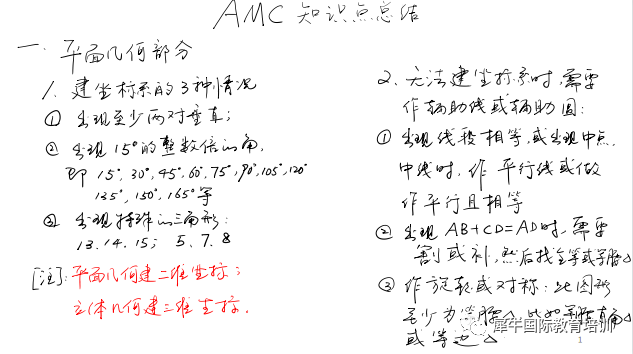 AMC 知识点总结
一、平面几何部分
1. 建坐标系的3种情况
① 出现至少两对垂直;
② 出现15°的整数倍的角,
即 15°, 30°, 45°, 60°, 75°, 90°, 105°, 120°
135°, 150°, 165° 等
③ 出现特殊的三角形:
13. 14. 15; 5、7、8
[注]: 平面几何建二维坐标;
立体几何建三维坐标.
2. 无法建坐标系时, 需要
作辅助线或辅助圆:
① 出现线段相等, 或出现中点,
中线时, 作平行线或做
作平行且相等
② 出现 AB+CD=AD时, 需要
割或补, 然后找全等或等腰△
③ 作旋转或对称: 此图形
至少为等腰△, 比如等腰直角△
或等边△
犀牛国际教育培训
1